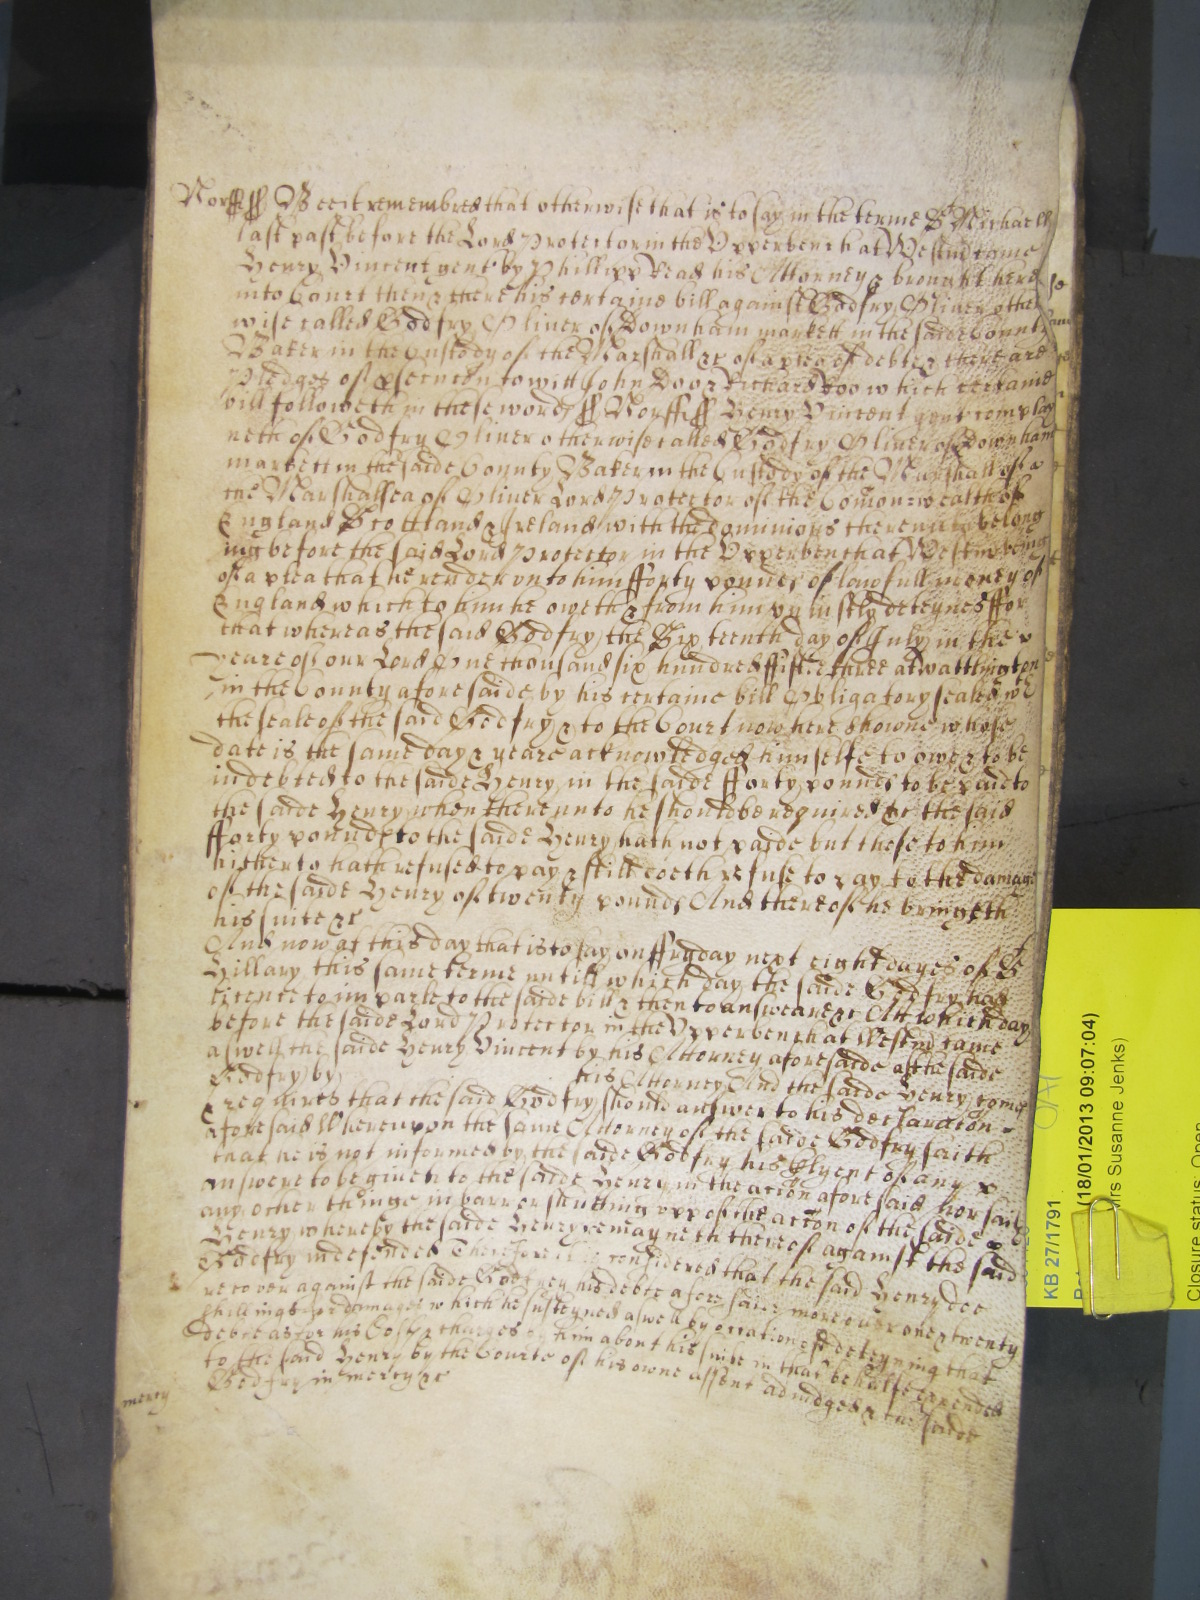 Norff ss Bee it remembred that otherwise that is to say in the terme St Michaell
last past before the Lord Protector in the Upperbench at Westm came
Henry Vincent gent by Phillipp Read his Attorney & brought here
into Court then & there his certaine bill against Godfry Oliver other
wise called Godfry Oliver of Downham markett in the saide County
Baker in the Custody of the Marshall &c of a plea of debte & there are
Pledges of psecucon to witt John Doo & Richard Roo which certaine
bill followeth in these words ss Norff ss Henry Vincent gent complay
neth of Godfry Oliver otherwise called Godfry Oliver of Downham
markett in the saide County Baker in the Custody of the Marshall of
the Marshallsea of Oliver Lord Protector of the Comon=wealth of
England Scottland & Ireland with the dominions thereunto belong
ing before the said Lord Protector in the Upperbench at Westm being
of a plea that he render unto him fforty pounds of lawfull money of
England which to him he oweth & from him unjustly deteynes ffor
that whereas the said Godfry the Sixteenth day of July in the
yeare of our Lord One thousand six hundred fiftie three at Wattlington
in the County aforesaide by his certaine bill Obligatory sealed wth
the seale of the said Godfry & to the Court now here showne whose
date is the same day & yeare acknowledged himselfe to owe & to be
indebted to the saide Henry in the saide fforty pounds to be paid to
the saide Henry when thereunto he should be required yet the said
fforty pounds to the saide Henry hath not paide but these to him
hitherto hath refused to pay & still doeth refuse to pay to the damage
of the saide Henry of twenty pounds And thereof he bringeth
his suite &c
And now at this day that is to say on ffryday next eight dayes of St
Hillary this same terme untill which day the saide Godfry had
licence to imparle to the saide bill & then to answeare &c Att which day
before the saide Lord Protector in the Upperbench at Westm came
aswell the saide Henry Vincent by his Attorney aforesaide as the saide
Godfry by his Attorney And the saide Henry
requires that the said Godfry should answer to his declaracon
aforesaid Whereupon the same Attorney of the saide Godfry saith
that he is not informed by the saide Godfry his Clyent of any
answere to be given to the saide Henry in the acion aforesaid nor saith
any other thinge in barr or shutting upp of the acion of the saide
Henry whereby the saide Henry remayneth thereof against the said
Godfry undefended Therefore it is considered that the said Henry doe
recover against the saide Godfrey his debte aforesaide moreover one & twenty
shillings for damages which he susteyned aswell by occation of deteyning that
debte as for his Costs & charges by him about his suite in that behalfe expended
to the said Henry by the Courte of his owne assent adiudged & the saide
Godfry in mercy &c
mercy
KB 27/1791
(18/01/2013 09:07:04)
Mrs Susanne Jenks)
Closure status Open